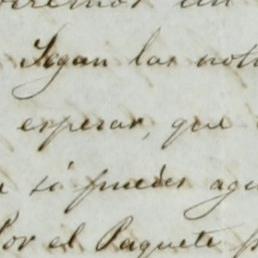 Segun las noti
esperar, que
si puedes agu
Por el Paquete